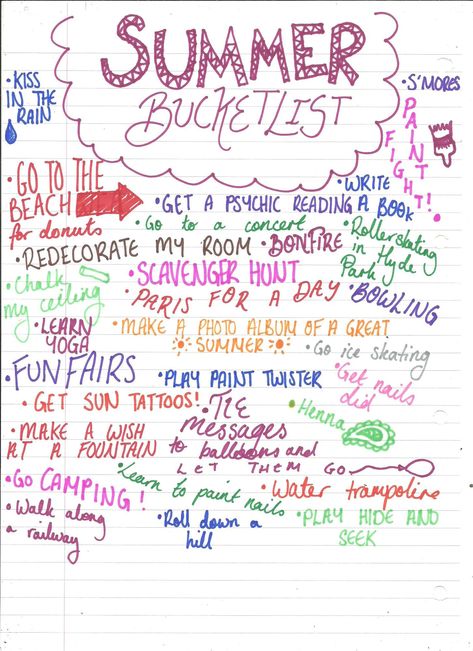 SUMMER
BUCKETLIST
• KISS
IN THE
RAIN
• S'MORES
PAINT
FIGHT!
• GO TO THE
BEACH
for donuts
• WRITE
A BOOK
• GET A PSYCHIC READING
• Go to a concert
• BONFIRE
• Rollerskating
in Hyde
Park
• REDECORATE MY ROOM
• SCAVENGER HUNT
• Chalk
my ceiling
• PARIS FOR A DAY
• BOWLING
• LEARN
YOGA
• MAKE A PHOTO ALBUM OF A GREAT
SUMMER
• Go ice skating
• FUN FAIRS
• PLAY PAINT TWISTER
• Get nails
did
• GET SUN TATTOOS!
• TIE
messages
to balloons and
LET THEM GO
• Henna
• MAKE A WISH
AT A FOUNTAIN
• GO CAMPING!
• Learn to paint nails
• Water trampoline
• Walk along
a railway
• Roll down a
hill
• PLAY HIDE AND
SEEK